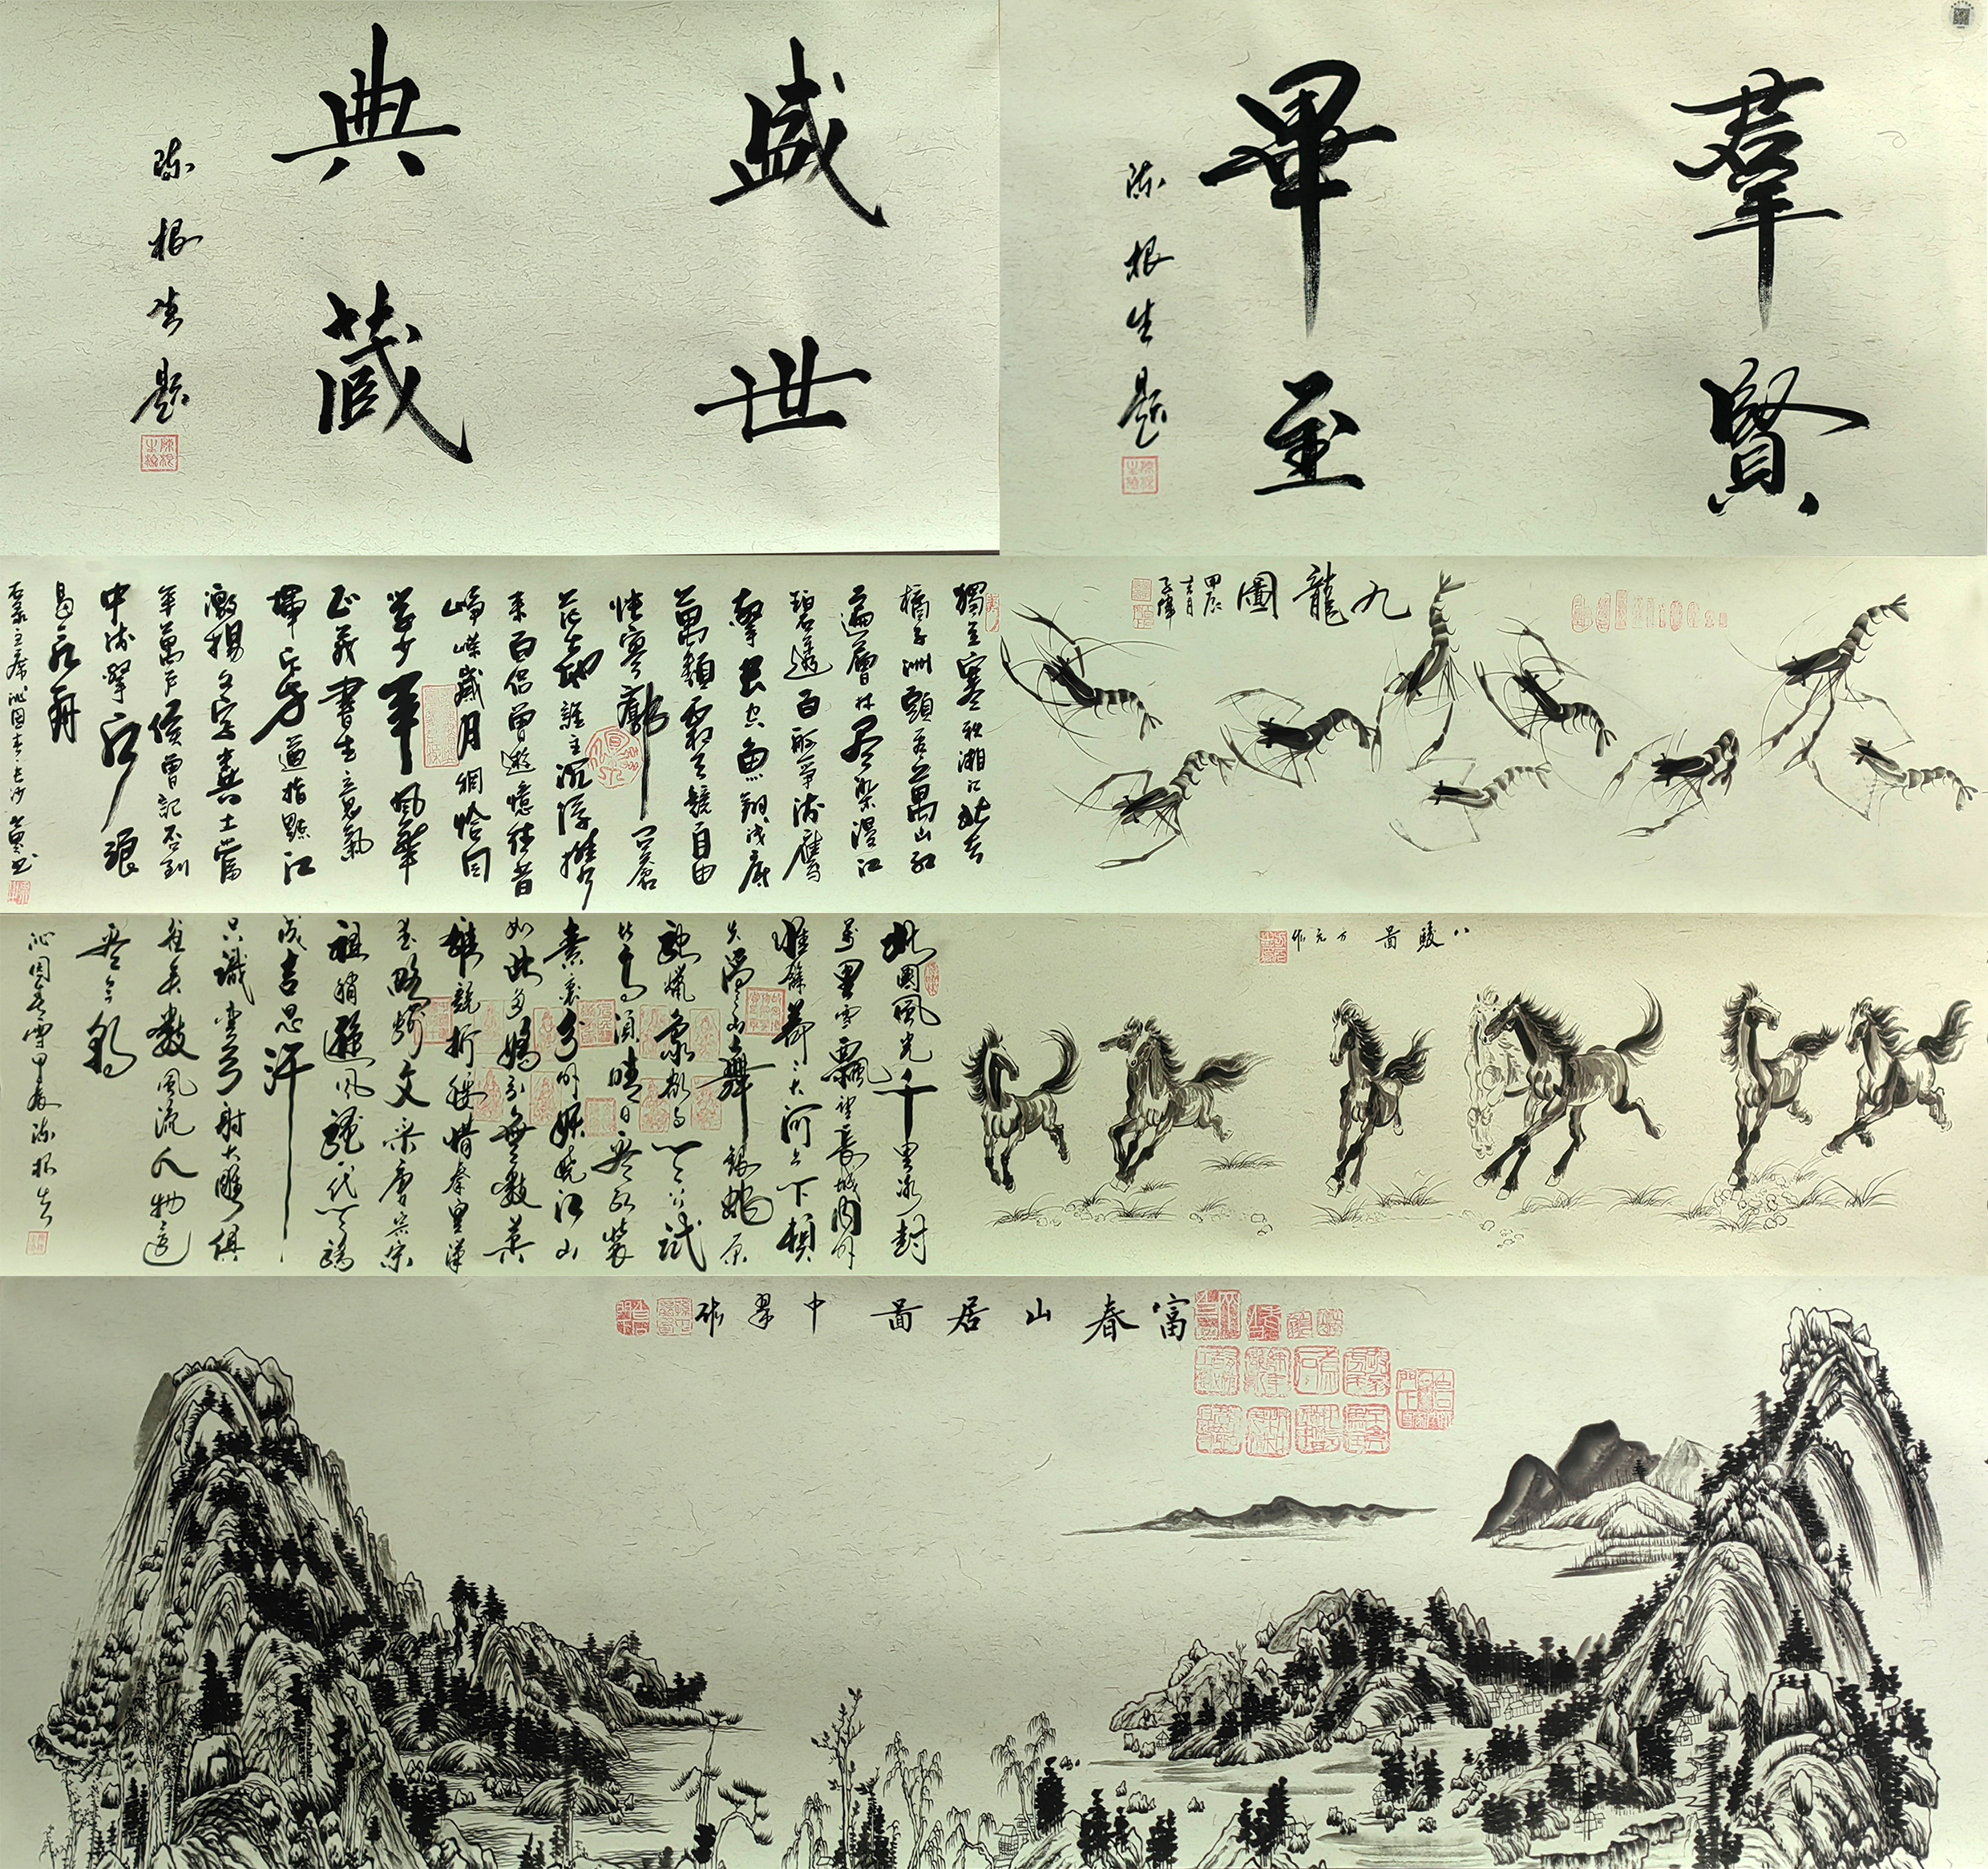 盛世
典藏
陈根生题
羣賢
畢至
陈根生题
九龍圖
甲辰
獨立寒秋湘江北去
橘子洲頭看萬山紅
遍層林尽染漫江
碧透百舸爭流鷹
擊長空魚翔浅底
萬類霜天競自由
悵寥廓問蒼
茫大地誰主沉浮攜
來百侣曾遊憶往昔
崢嶸歲月稠恰同
学少年風華
正茂書生意氣
揮斥方遒指點江
激揚文字糞土當
年萬户侯曾記否到
中流擊水浪
遏飛舟
右录主席沁园春·长沙
八駿图 方元作
北國風光千里冰封
萬里雪飄望長城内外
惟餘莽々大河上下頓
失滔々山舞銀蛇原
馳蠟象欲与天公試
比高須晴日看红裝
素裹分外妖娆江山
如此多嬌引無數英
雄競折腰惜秦皇漢
武略输文采唐宗宋
祖稍遜风骚一代天骄
成吉思汗
只識弯弓射大雕俱
往矣數風流人物還
看今朝
沁园春雪甲辰陈根生
富春山居图 中翠作